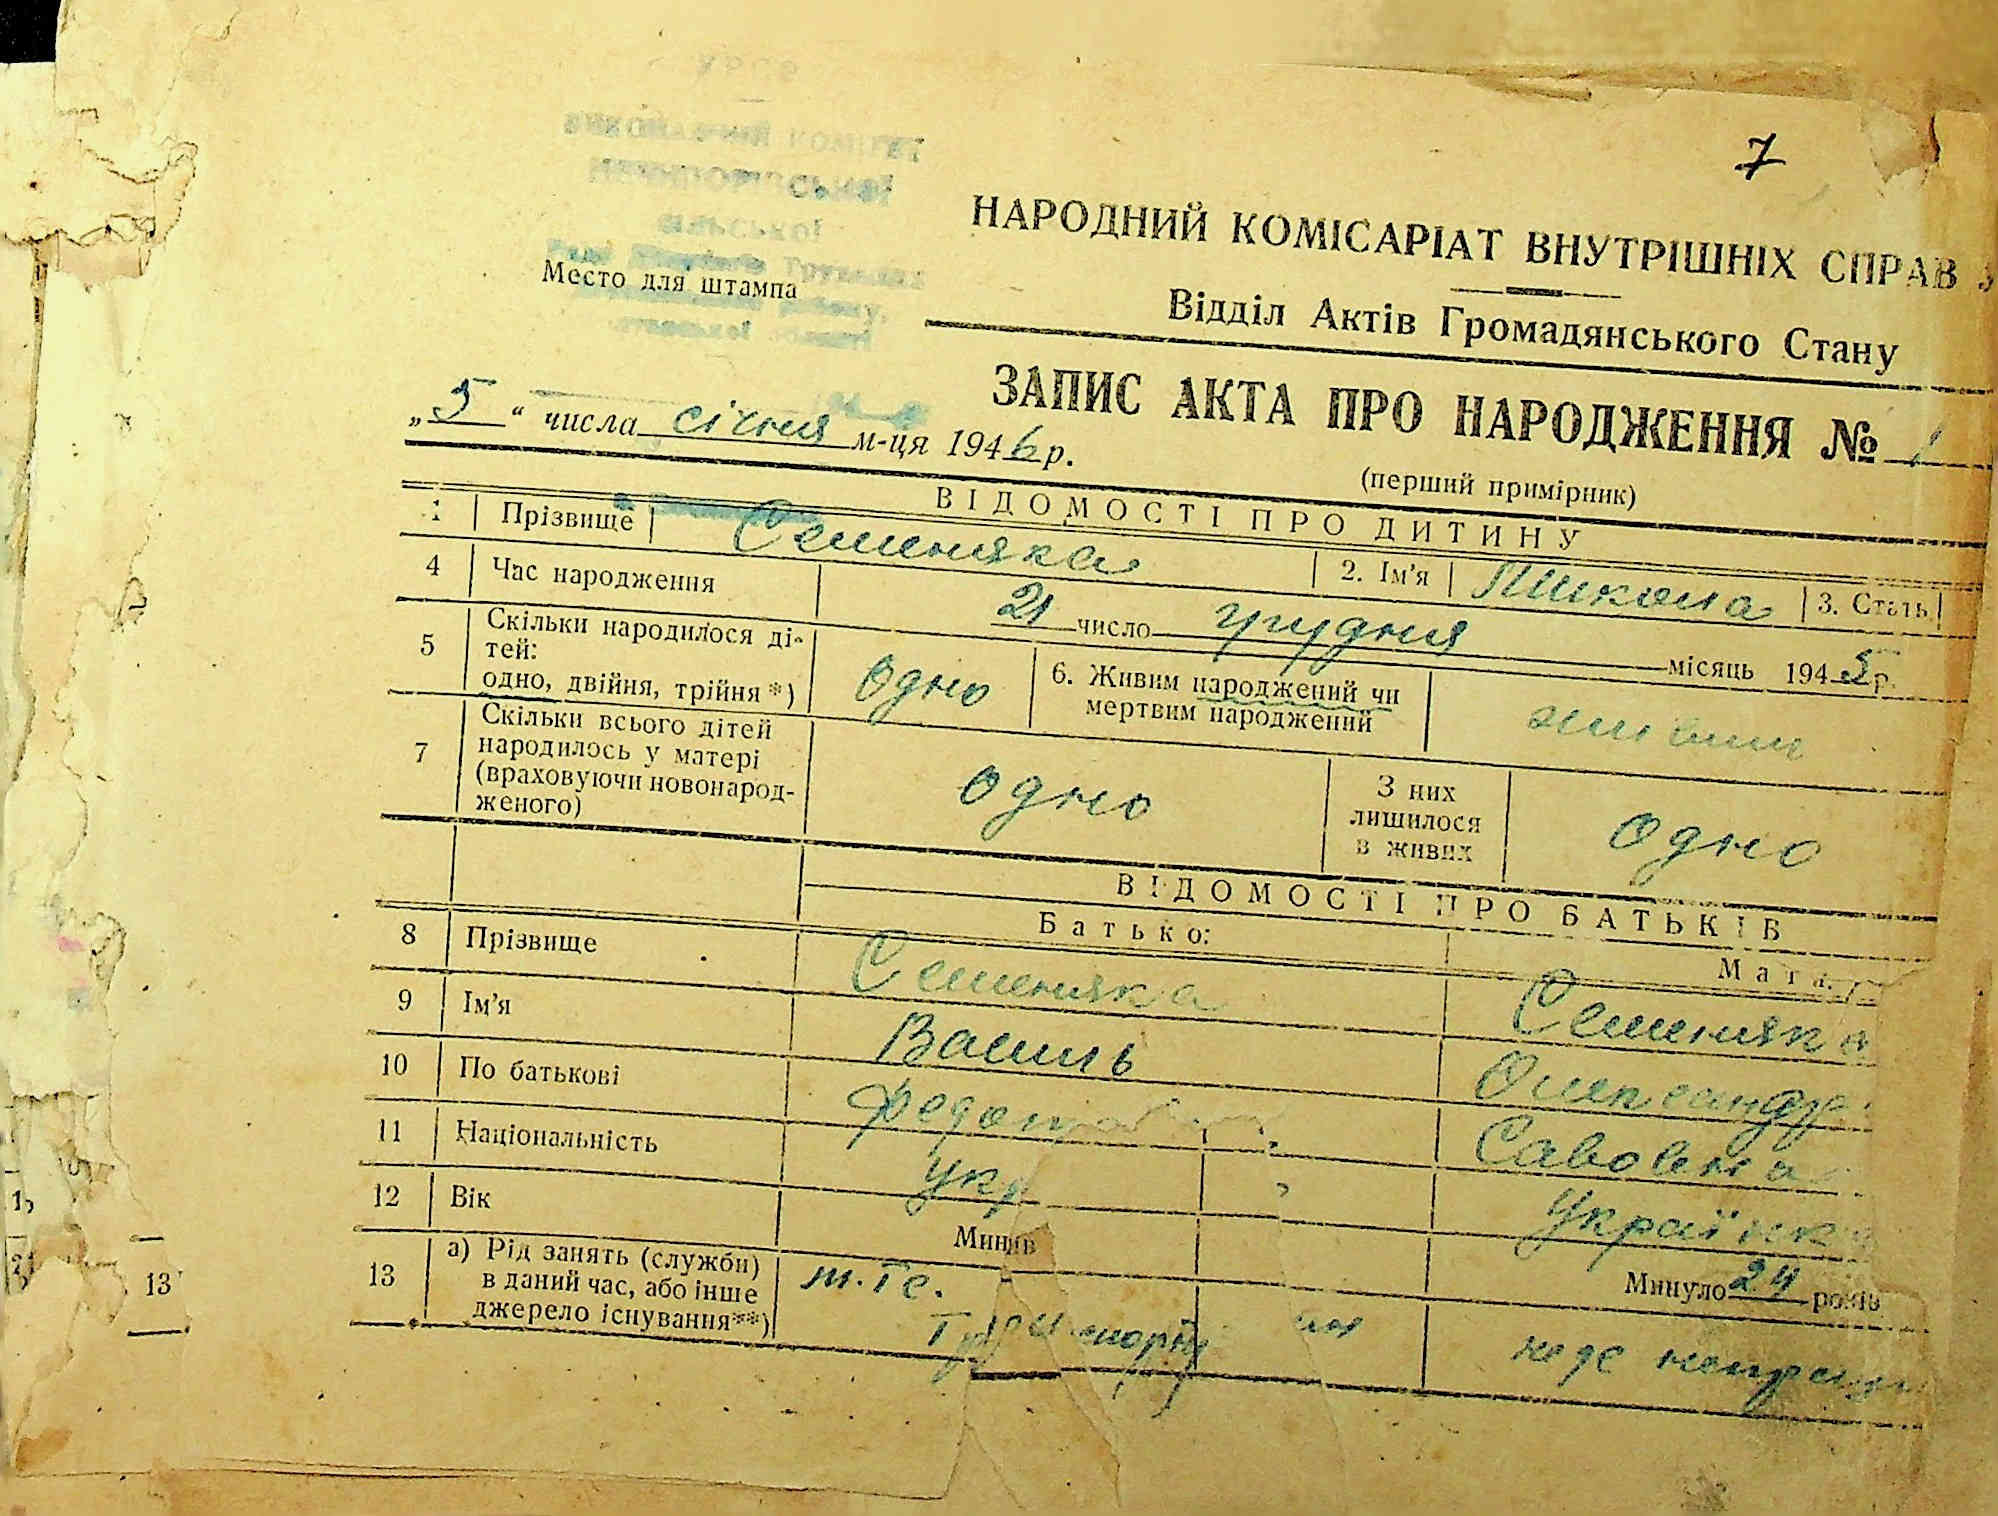 7
УРСР
ВИКОНАВЧИЙ КОМІТЕТ
СІЛЬСЬКОЇ
Место для штампа
НАРОДНИЙ КОМІСАРІАТ ВНУТРІШНІХ СПРАВ
Відділ Актів Громадянського Стану
ЗАПИС АКТА ПРО НАРОДЖЕННЯ № 1
„5“ числа січня м-ця 1946 р.
(перший примірник)
ВІДОМОСТІ ПРО ДИТИНУ
1 Прізвище Семеняка 2. Ім'я Микола 3. Стать
4 Час народження 21 число грудня місяць 1945 р.
5 Скільки народилося ді-
тей:
одно, двійня, трійня *) одно 6. Живим народжений чи
мертвим народжений живим
7 Скільки всього дітей
народилось у матері
(враховуючи новонарод-
женого) одно З них
лишилося
в живих одно
ВІДОМОСТІ ПРО БАТЬКІВ
Батько: Мати:
8 Прізвище Семеняка Семеняка
9 Ім'я Василь Олександр
10 По батькові Федот Савовна
11 Національність укр Українка
12 Вік Минув Минуло 24 років
13 а) Рід занять (служби)
в даний час, або інше
джерело існування**)
13